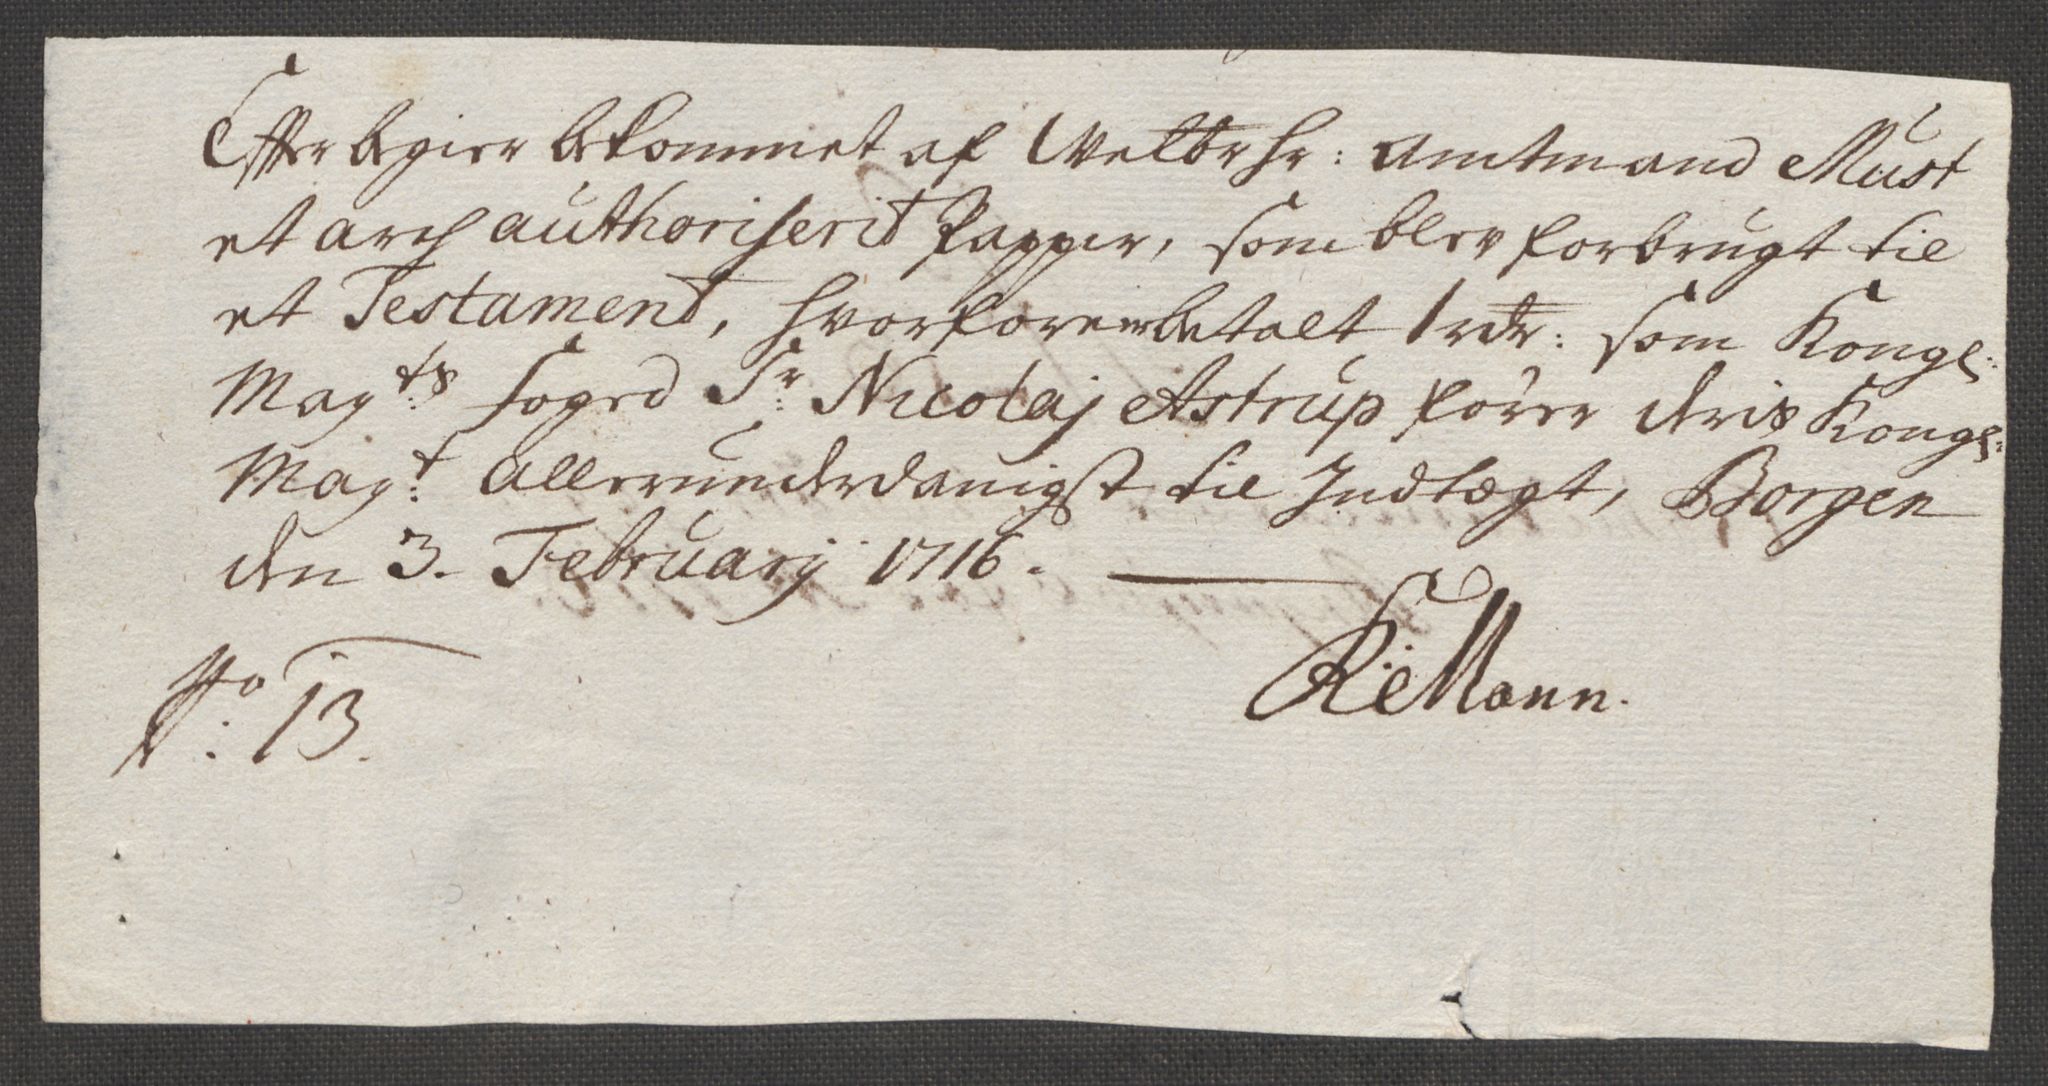 Effter begier bekommet af Welbr Hr: Amtmand Must
et arch authoriserit Papper, som blev forbrugt til
et Testament, hvorfore er betalt 1 rdr: som Kongl:
May:ts foged Sr: Nicolaj Astrup fører deris Kongl:
May:t allerunderdanigst til Indtægt, Borgen
den 3. February 1716.
No: 13.